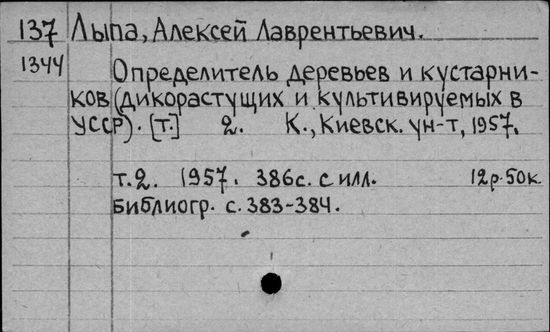 137 Лыпа, Алексей Лаврентьевич.
1344
Определитель деревьев и кустарни-
ков (дикорастущих и культивируемых в
УССР). [т.] 2. К., Киевск. ун-т, 1957.
т.2. 1957. 386с. с илл. 12р.50к.
Библиогр. с. 383-384.